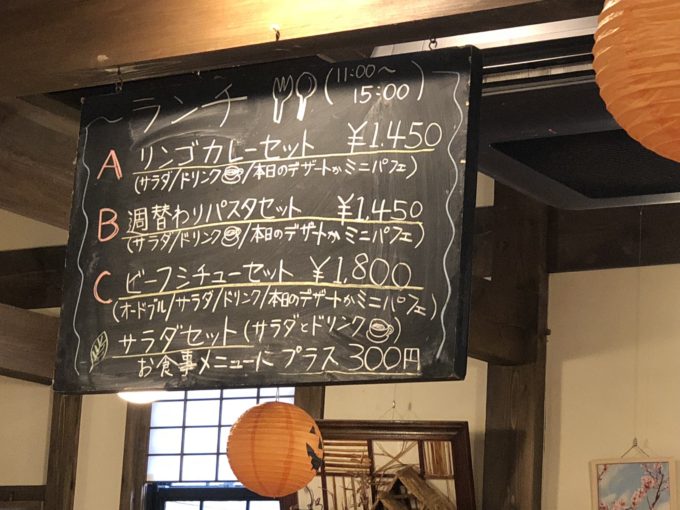 ～ランチ (11:00～
15:00)
A リンゴカレーセット ¥1.450
(サラダ/ドリンク/本日のデザートかミニパフェ)
B 週替わりパスタセット ¥1.450
(サラダ/ドリンク/本日のデザートかミニパフェ)
C ビーフシチューセット ¥1.800
(オードブル/サラダ/ドリンク/本日のデザートかミニパフェ)
サラダセット(サラダとドリンク)
お食事メニューにプラス300円